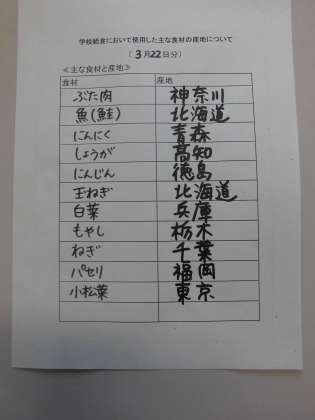 学校給食において使用した主な食材の産地について
(3月22日分)
≪主な食材と産地≫
食材 産地
ぶた肉 神奈川
魚(鮭) 北海道
にんにく 青森
しょうが 高知
にんじん 徳島
玉ねぎ 北海道
白菜 兵庫
もやし 栃木
ねぎ 千葉
パセリ 福岡
小松菜 東京